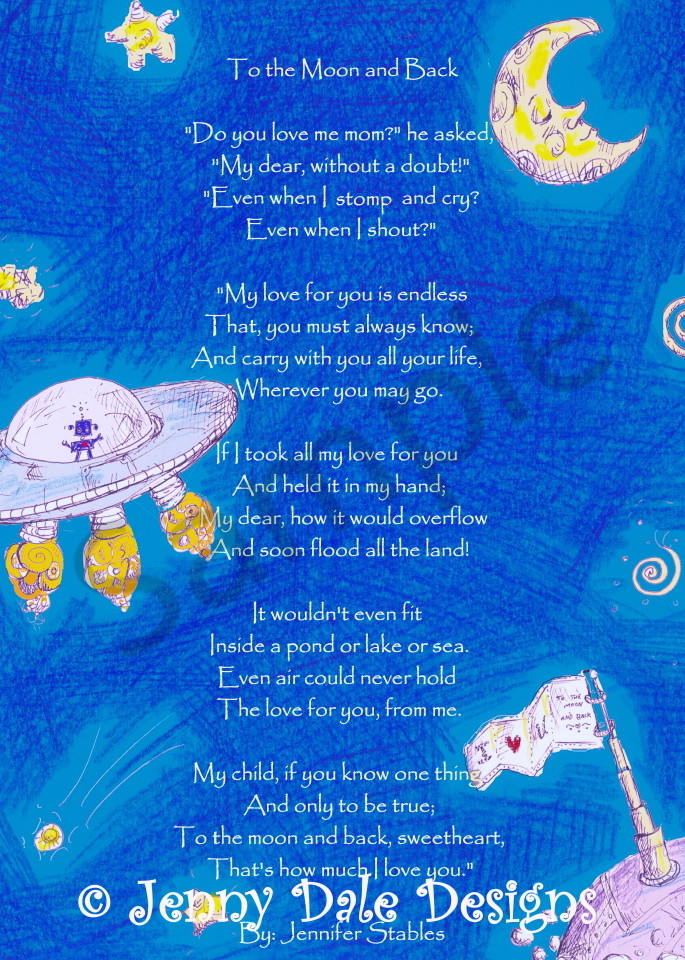 To the Moon and Back
"Do you love me mom?" he asked,
"My dear, without a doubt!"
"Even when I stomp and cry?
Even when I shout?"
"My love for you is endless
That, you must always know;
And carry with you all your life,
Wherever you may go.
If I took all my love for you
And held it in my hand;
My dear, how it would overflow
And soon flood all the land!
It wouldn't even fit
Inside a pond or lake or sea.
Even air could never hold
The love for you, from me.
TO THE
MOON
AND BACK
My child, if you know one thing
And only to be true;
To the moon and back, sweetheart,
That's how much I love you."
© Jenny Dale Designs
By: Jennifer Stables
Sample